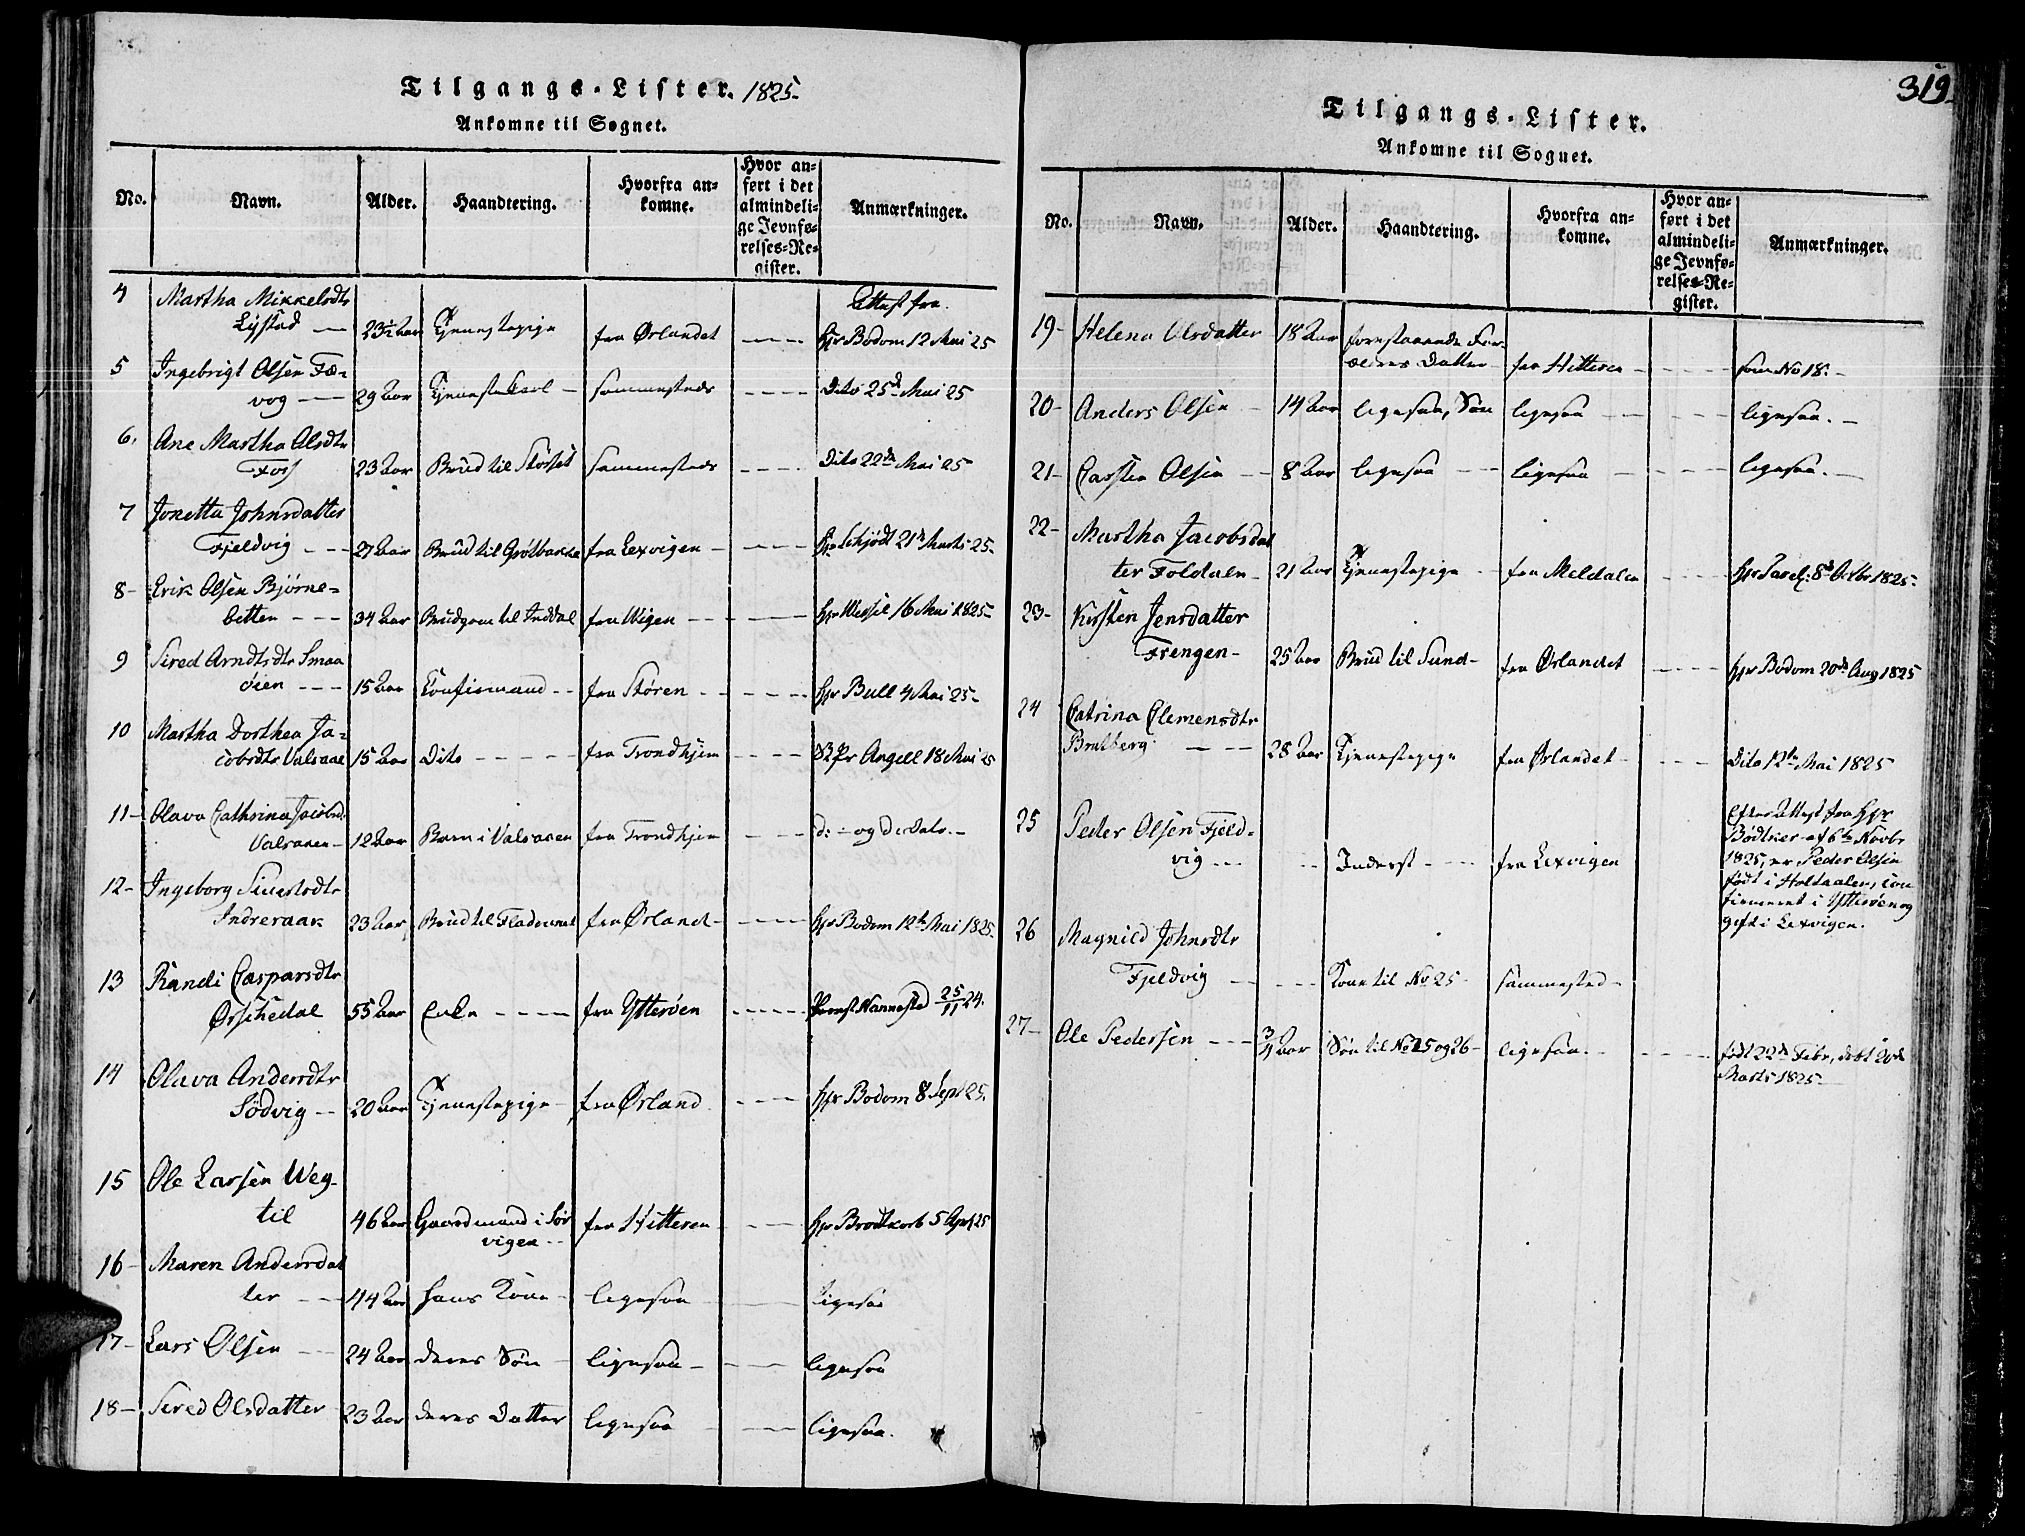 Tilgangs-Lister. 1825.
Ankomne til Sognet.
No. Navn. Alder. Haandtering. Hvorfra an-
komne. Hvor an-
ført i det
almindeli-
ge Jevnfø-
relses-Re-
gister. Anmærkninger.
4 Martha Mikkelsdtr Attest fra
Lystad — 23½ Aar Tjenestepige fra Ørlandet ---- Hr Bodom 12 Mai 25
5 Ingebrigt Olsen Fæ-
vog — 29 Aar Tjenestekarl – sammesteds ---- Dito 25d Mai 25
6. Ane Martha Olsdtr
Foss 23 Aar Brud til Storset sammesteds ---- Dito 22de Mai 25
7 Jonetta Johnsdatter
Fjeldvig --- 27 Aar Brud til Grøtbakke fra Lexvigen – ---- Hr Schjødt 21d Marts 25-
8- Erik Olsen Bjørne-
betten --- 34 Aar Brudgom til Inddal fra Wigen -- ---- Hr Wessel 16 Mai 1825-
9 Sired Arndtsdtr Smaa
øien --- 15 Aar Confirmand -- fra Støren -- ---- Hr Bull 4 Mai 25-
10 Martha Dorthea Ja-
cobsdtr Valsaae 15 Aar Dito ----- fra Trondhjem ---- Angell 18 Mai 25
11- Olava Cathrina Jacobsd.
Valsaaen – 12 Aar Barn i Valsaaen fra Trondhjem --- d: - og d: dato. -
12- Ingeborg Siverstsdtr
Indreraak 23 Aar Brud til Fladeset fra Ørland – ---- Hr Bodom 12te Mai 1825-
13 Randi Caspersdtr
Ørschedal 55 Aar Enke ---- fra Ytterøen ----- Provst Nannestad 25/11 24.
14 Olava Andersdtr
Södvig -- 20 Aar Tjenestepige – fra Ørland --- Hr Bodom 8 Sept 25.
15 Ole Larsen Weg-
til 46 Aar Gaardmand i Sør fra Hitteren --- Hr Brodtkorb 5 Apr 25
vigen --
16- Maren Andersdat
ter -- 44 Aar hans Kone – ligesaa --- Ligesaa
17- Lars Olsen -- 24 Aar deres Søn – ligesaa – --- ligesaa
18- Sired Olsdatter 23 Aar deres Datter ligesaa ---- ligesaa.
319
Tilgangs-Lister.
Ankomne til Sognet.
No. Navn. Alder. Haandtering. Hvorfra an-
komne. Hvor an-
ført i det
almindeli-
ge Jevnfø-
relses-Re-
gister. Anmærkninger.
19- Helena Olsdatter 18 Aar forestaaende For-
ældres Datter fra Hitteren – ---- som No 18. -
20- Anders Olsen – 14 Aar ligesaa, Søn ligesaa -- ---- ligesaa. -
21- Carsten Olsen -- 8 Aar ligesaa -- ligesaa – ---- ligesaa. -
22- Martha Jacobsdat
ter Foldalen – 21 Aar Tjenestepige -- fra Meldalen ---- 8de Octbr 1825-
23- Kirsten Jensdatter
Frengen – 25 Aar Brud til Sund – fra Ørlandet ---- Hr Bodom 20de Aug 1825
24 Catrina Clemensdtr
Bratberg. --- 28 Aar Tjenestepige fra Ørlandet – --- Dito 12te Mai 1825
25 Peder Olsen Fjeld-
vig --- -- Inderst ---- fra Lexvigen Efter Attest fra Hr
Bødtker af 6te Novbr
1825, er Peder Olsen
født i Holtaalen, con
firmeret i Ytterøen og
gift i Lexvigen.
26 Magnild Johnsdtr
Fjeldvig -- --- Kone til No 25 – sammested –
27- Ole Pedersen --- ¾ Aar Søn til No 25 og 26 – ligesaa. - ---- født 22de Febr, døbt 20de
Marts 1825-